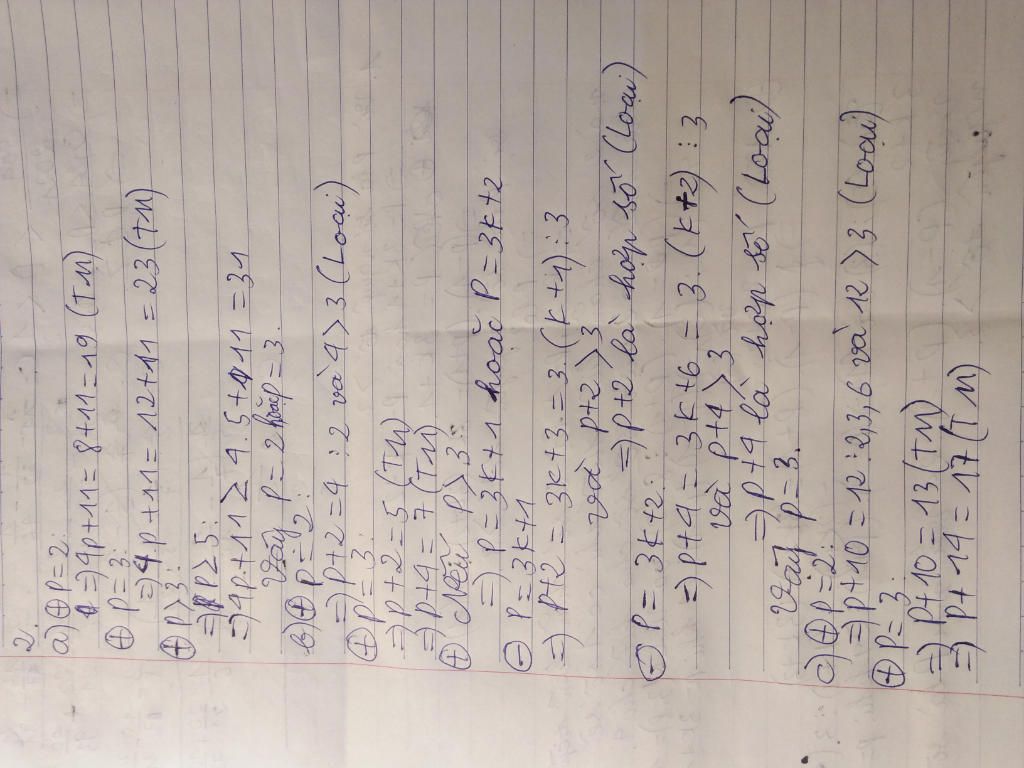 2.
a) ⊕ p = 2:
=> 4p + 11 = 8 + 11 = 19 (TM)
⊕ p = 3:
=> 4p + 11 = 12 + 11 = 23 (TM)
⊕ p > 3:
=> p ≥ 5:
=> 4p + 11 ≥ 4.5 + 11 = 31
Vậy p = 2 hoặc p = 3.
b) ⊕ p = 2:
=> p + 2 = 4 ⋮ 2 và 4 > 3 (Loại)
⊕ p = 3:
=> p + 2 = 5 (TM)
=> p + 4 = 7 (TM)
⊕ Nếu p > 3:
=> p = 3k + 1 hoặc p = 3k + 2
⊖ p = 3k + 1
=> p + 2 = 3k + 3 = 3.(k + 1) ⋮ 3
và p + 2 > 3
=> p + 2 là hợp số (Loại)
⊖ p = 3k + 2:
=> p + 4 = 3k + 6 = 3.(k + 2) ⋮ 3
và p + 4 > 3
=> p + 4 là hợp số (Loại)
Vậy p = 3.
c) ⊕ p = 2:
=> p + 10 = 12 ⋮ 2, 3, 6 và 12 > 3 (Loại)
⊕ p = 3:
=> p + 10 = 13 (TM)
=> p + 14 = 17 (TM)